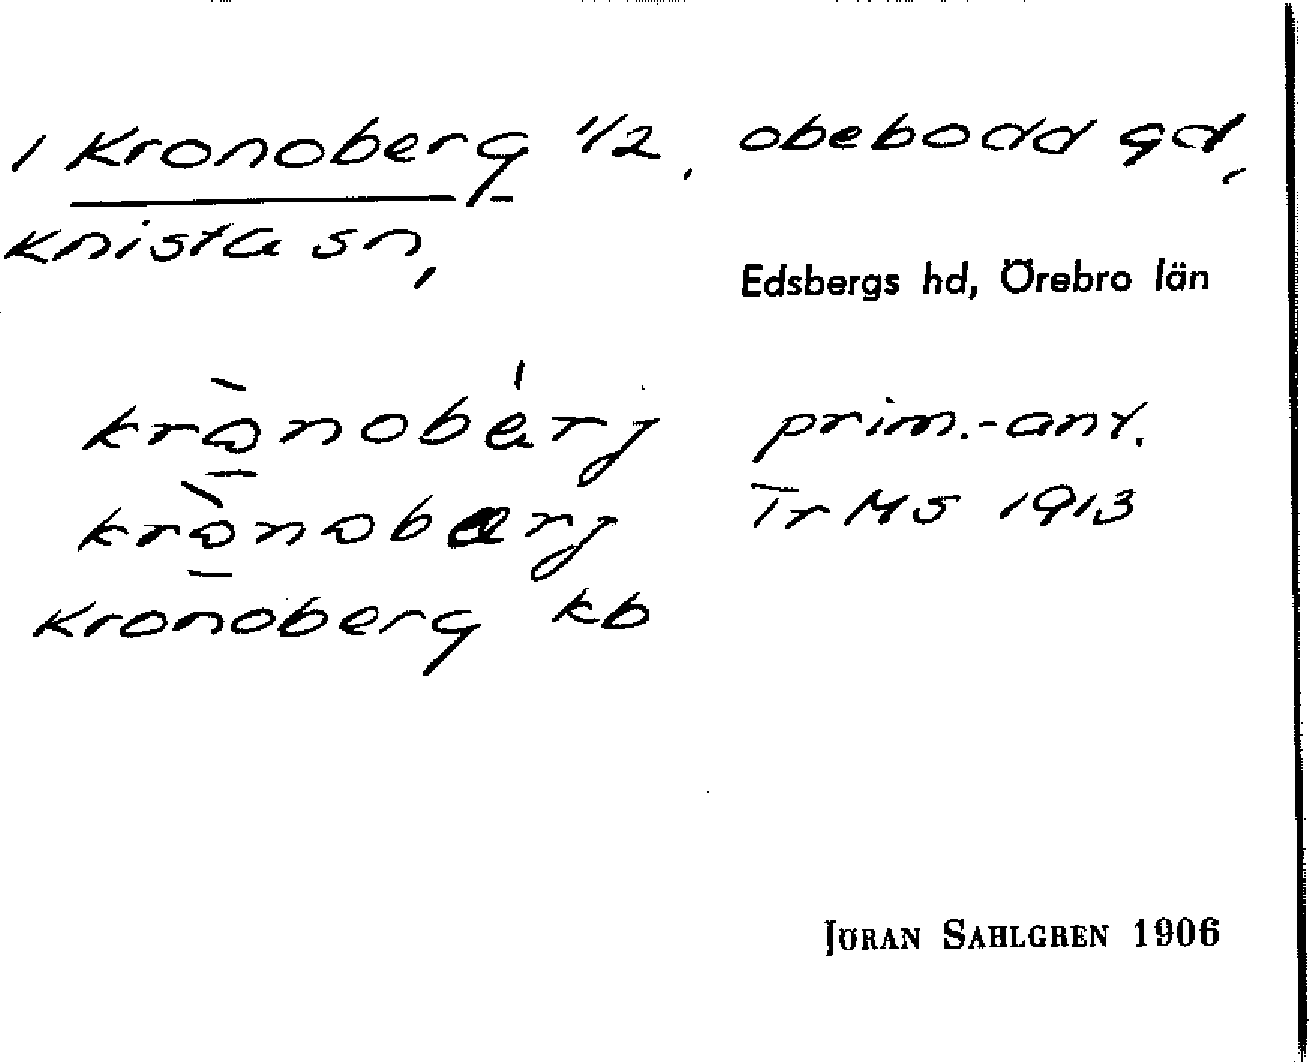 1 Kronoberg 1/2, obebodd gd,
Knista sn,
Edsbergs hd, Örebro län
krò̱nobérj prim.-ant.
krò̱noberj Tr MS 1913
Kronoberg kb
JÖRAN SAHLGREN 1906